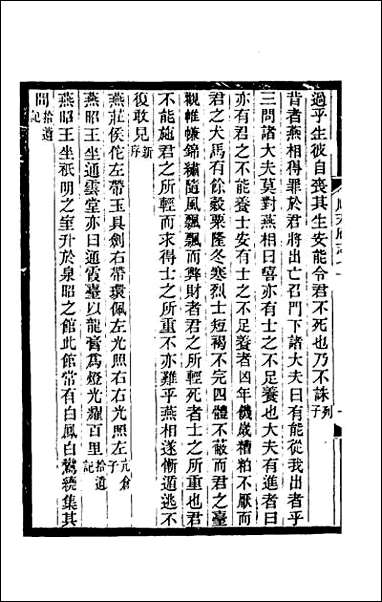 過乎生彼自喪其生安能令君不死也乃不誅列子
昔者燕相得罪於君將出亡召門下諸大夫曰有能從我出者乎
三問諸大夫莫對燕相曰嘻亦有士之不足養也大夫有進者曰
亦有君之不能養士安有士之不足養者凶年饑歲糟粕不厭而
君之犬馬有餘穀粟隆冬寒烈士短褐不完四體不蔽而君之臺
觀帷㡘錦繡隨風飄飄而弊財者君之所輕死者士之所重也君
不能施君之所輕而求得士之所重不亦難乎燕相遂慚遁逃不
復敢見新序
燕莊侯佗左帶玉具劍右帶環佩左光照右右光照左亢倉子
燕昭王坐通雲堂亦曰通霞臺以龍膏為燈光耀百里拾遺記
燕昭王坐祇明之室升於泉昭之館此館常有白鳳白鸞繞集其
間拾遺記